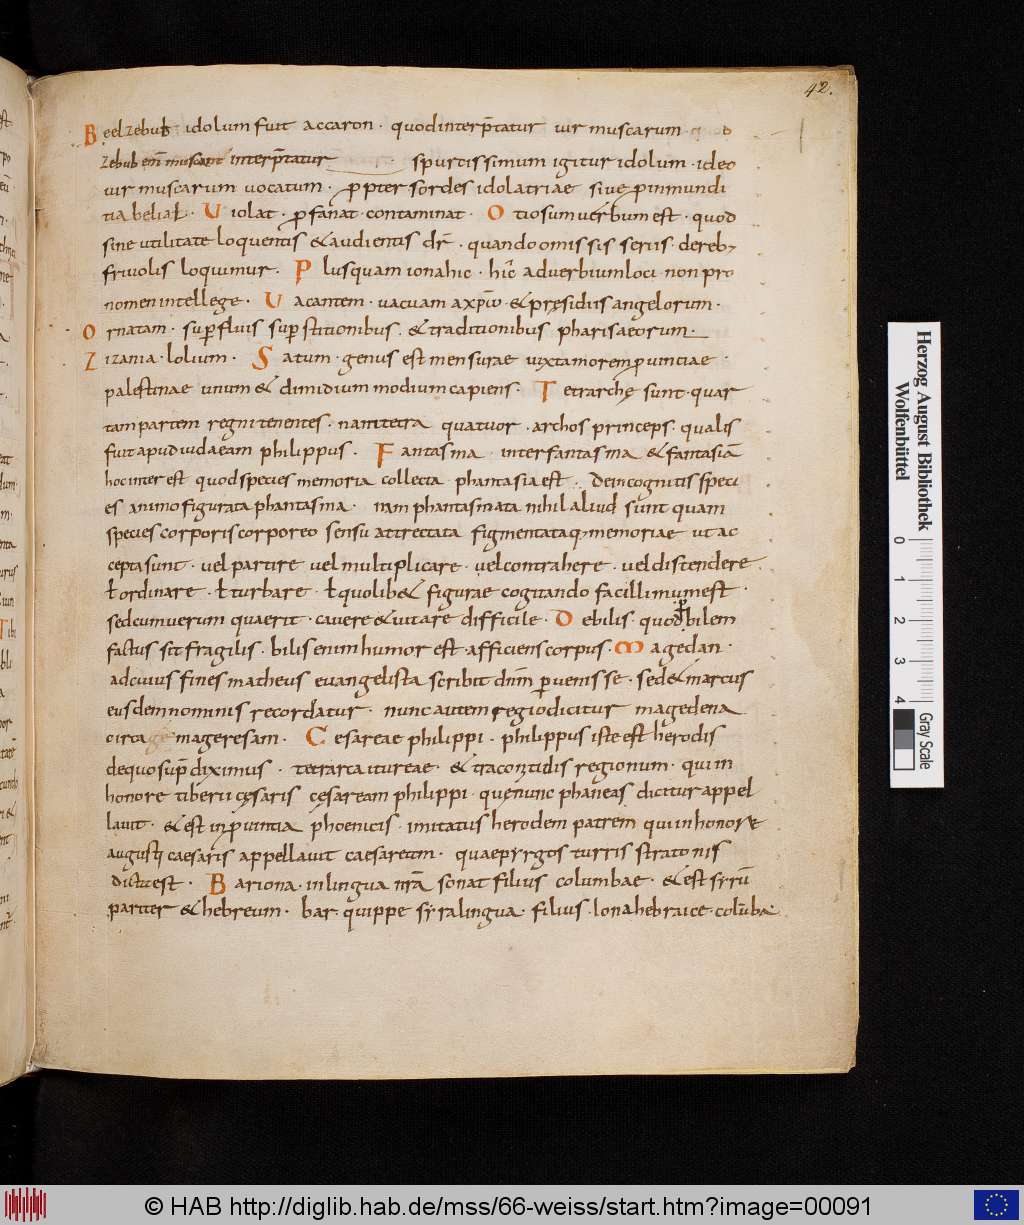 42.
Beelzebub idolum fuit accaron · quod interp̄tatur uir muscarum
zebub eni᷒ muscarum interp̄tatur spurtissimum igitur idolum · ideo
uir muscarum uocatum · ꝓpter sordes idolatriae siue ꝑ inmundi
tia belial · Uiolat · ꝓfanat · contaminat · Otiosum uerbum est · quod
sine utilitate loquentis & audientis dr̄ · quando omissis seriis · de reb;
friuolis loquimur · Plusquam iona hic · hic aduerbium loci · non pro
nomen intellege · Uacantem · uacuam a xp̄o · & pręsidiis angelorum ·
Ornatam · suꝑfluis suꝑstitionibus · & traditionibus pharisaeorum ·
Zizania · lolium · Satum · genus est mensurae iuxta morem ꝓuintiae ·
palestinae unum & dimidium modium capiens · Tetrarchę sunt · quar
tam partem regni tenentes · nam tetra quatuor · archos princeps · qualis
fuit apud iudaeam philippus · Fantasma · inter fantasma & fantasiā
hoc inter est quod species memoria collecta phantasia est · De incognitis speci
es animo figurata phantasma · nam phantasmata nihil aliud sunt quam
species corporis corporeo sensu attrectata figmentataq; memoriae ut ac
cepta sunt · uel partire uel multiplicare · uel contrahere · uel distendere
ł ordinare · ł turbare · ł quolib& figurae cogitando facillimum est ·
sed cum uerum quaerit · cauere & uitare difficile · Debilis · quod ꝑ bilem
factus sit fragilis · bilis enim humor est · afficiens corpus · Magedan ·
ad cuius fines matheus euangelista scribit dn̄m ꝑuenisse · sed & marcus
eiusdem nominis recordatur · nunc autem regio dicitur magedena
circa geresam · Cesareae philippi · philippus iste est herodis
de quo sup̄ diximus · tetrarta itureae · & traconitidis regionum · qui in
honore tiberii cęsaris cęsaream philippi · quę nunc phaneas dicitur appel
lauit · & est in ꝓuintia phoenicis · imitatus herodem patrem qui in honore
augusti caesaris appellauit caesaream · quae pyrgos turris stratonis
dicta est · Bariona · in lingua nr̄a sonat filius columbae · & est syrū
pariter & hebreum · bar quippe syra lingua · filius · Iona hebraice · colūba
Herzog August Bibliothek
Wolfenbüttel
0 1 2 3 4
Gray Scale
© HAB http://diglib.hab.de/mss/66-weiss/start.htm?image=00091